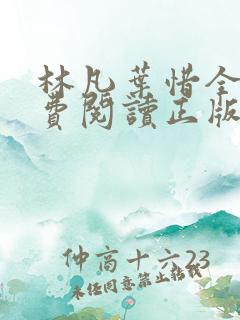 林凡葉惜全
費閱讀正版
仲高十六23
未经同意禁止转载